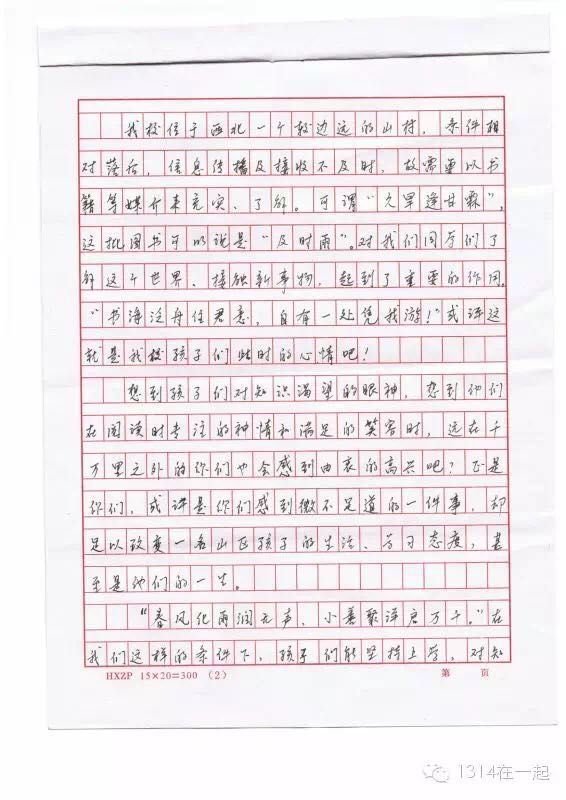 我校位于西北一个较边远的山村，条件相
对落后，信息传播及接收不及时，故需要以书
籍等媒介来充实、了解。可谓“久旱逢甘霖”，
这批图书可以说是“及时雨”。对我们同学们了
解这个世界、接触新事物，起到了重要的作用。
“书海泛舟任君意，自有一处凭我游！”或许这
就是我校孩子们此时的心情吧！
想到孩子们对知识渴望的眼神，想到他们
在阅读时专注的神情和满足的笑容时，远在千
万里之外的你们也会感到由衷的高兴吧？正是
你们，或许是你们感到微不足道的一件事，却
足以改变一名山区孩子的生活、学习态度，甚
至是他们的一生。
“春风化雨润无声，小善聚泽启万千。”在
我们这样的条件下，孩子们能坚持上学，对知
HXZP 15×20=300 (2) 第 页
1314在一起